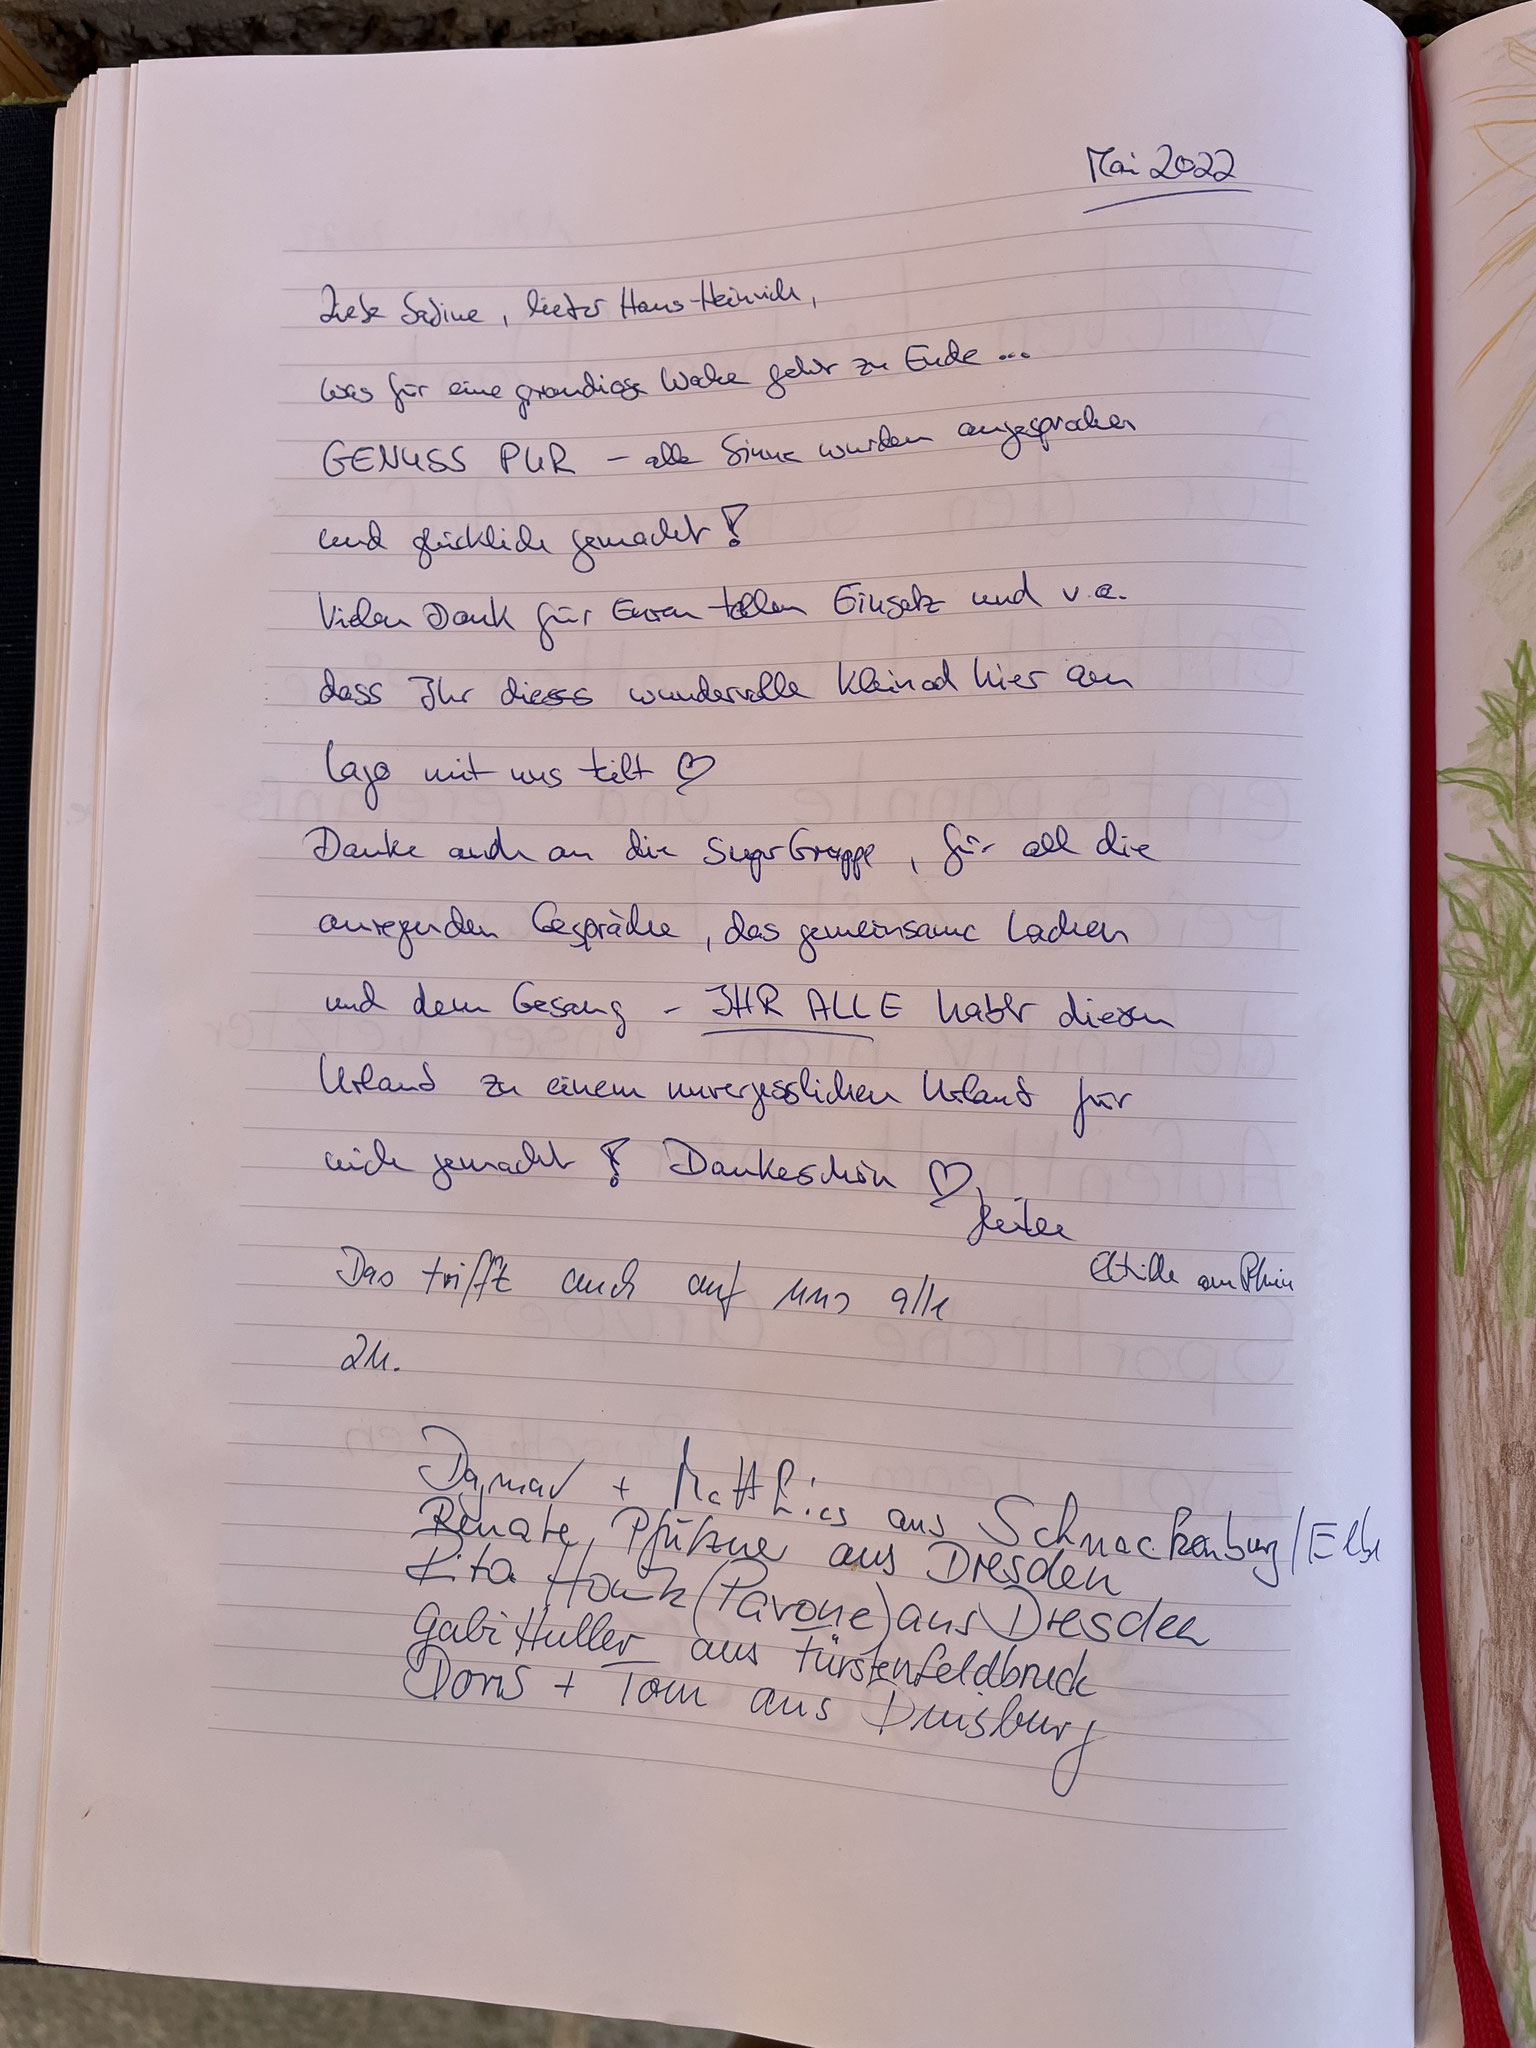 Mai 2022
Liebe Sabine, lieber Hans-Heinrich,
was für eine grandiose Woche geht zu Ende...
GENUSS PUR – alle Sinne wurden angesprochen
und glücklich gemacht!
Vielen Dank für Euren tollen Einsatz und v.a.
dass Ihr dieses wundervolle Kleinod hier am
Lago mit uns teilt ♡
Danke auch an die SuperGruppe, für all die
anregenden Gespräche, das gemeinsame Lachen
und dem Gesang – IHR ALLE habt diesen
Urlaub zu einem unvergesslichen Urlaub für
mich gemacht! Dankeschön ♡
Eltville am Rhein
Das trifft auch auf uns alle
zu.
Dagmar + Matthias aus Schnackenburg/Elbe
Renate Pfützner aus Dresden
Rita (Pavone) aus Dresden
Gabi Huller aus Fürstenfeldbruck
Doris + Tom aus Duisburg